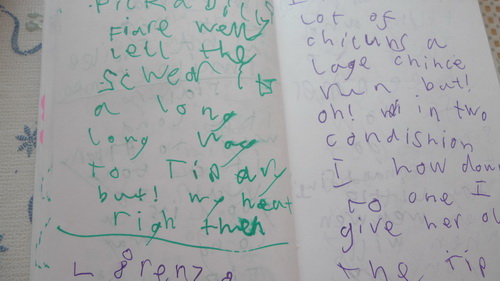 PICKADILLY
Fiare well
Lell the
SCWear it
a long
long way
to TIP an
but! my heat
righ then
lot of
chicuns a
Lage chince
run but!
oh! in two
condishion
I how down
to one I
give her ou
the TIP